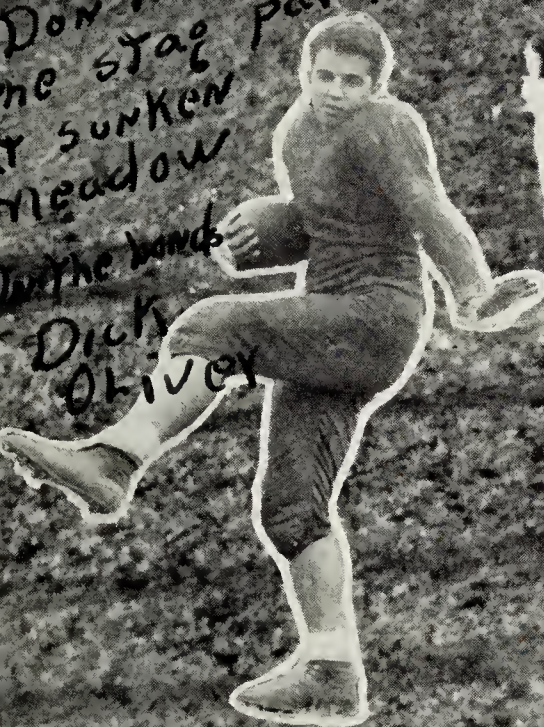 Don
The stag par
sunken
meadow
the bonds
Dick
OLIVEY